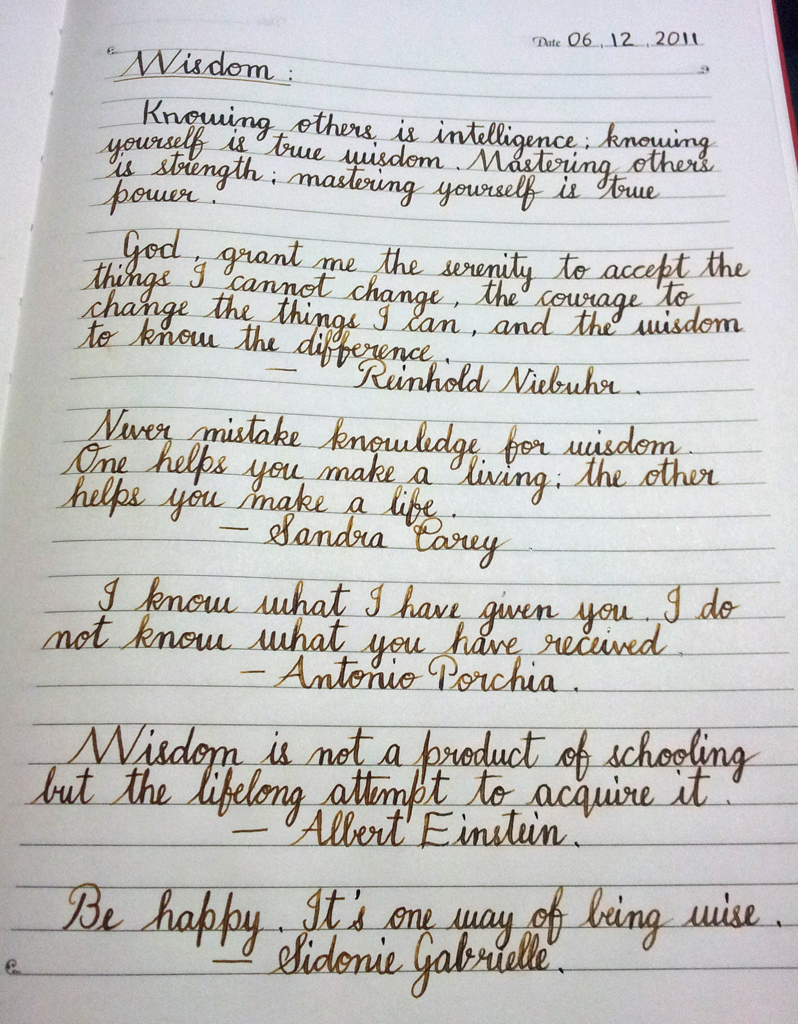 Date 06, 12, 2011
Wisdom :
Knowing others is intelligence; knowing
yourself is true wisdom. Mastering others
is strength; mastering yourself is true
power.
God, grant me the serenity to accept the
things I cannot change, the courage to
change the things I can, and the wisdom
to know the difference.
— Reinhold Niebuhr.
Never mistake knowledge for wisdom.
One helps you make a living; the other
helps you make a life.
— Sandra Carey
I know what I have given you. I do
not know what you have received.
— Antonio Porchia.
Wisdom is not a product of schooling
but the lifelong attempt to acquire it.
— Albert Einstein.
Be happy. It's one way of being wise.
— Sidonie Gabrielle.